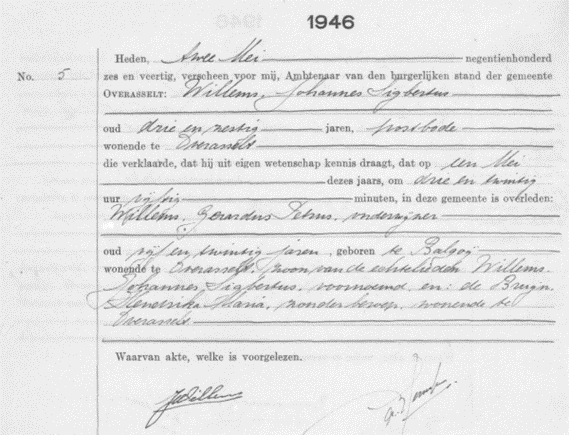 1946
Heden, twee Mei negentienhonderd
No. 5 zes en veertig, verscheen voor mij, Ambtenaar van den burgerlijken stand der gemeente
OVERASSELT: Willems, Johannes Sigbertus
oud drie en zestig jaren, postbode
wonende te Overasselt
die verklaarde, dat hij uit eigen wetenschap kennis draagt, dat op een Mei
dezes jaars, om drie en twintig
uur vijftig minuten, in deze gemeente is overleden:
Willems, Gerardus Petrus, onderwijzer
oud vijf en twintig jaren, geboren te Balgoij
wonende te Overasselt, zoon van de echtelieden Willems,
Johannes Sigbertus, voornoemd en: de Bruijn,
Hendrika Maria, zonder beroep, wonende te
Overasselt
Waarvan akte, welke is voorgelezen.
JWillems